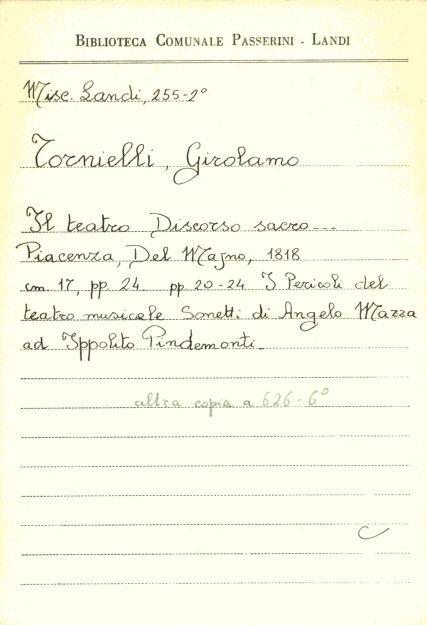 BIBLIOTECA COMUNALE PASSERINI - LANDI
Misc. Landi, 255-2°
Tornielli, Girolamo
Il teatro Discorso sacro---
Piacenza, Del Majno, 1818
cm. 17, pp. 24. pp 20-24 I Pericoli del
teatro musicale Sonetti di Angelo Mazza
ad Ippolito Pindemonti.
altra copia a 626-6°
C